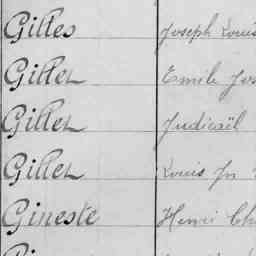 Gilles Joseph Louis
Gillet Emile Jos
Gillet Judicaël
Gillet Louis Jn
Gineste Henri Ch